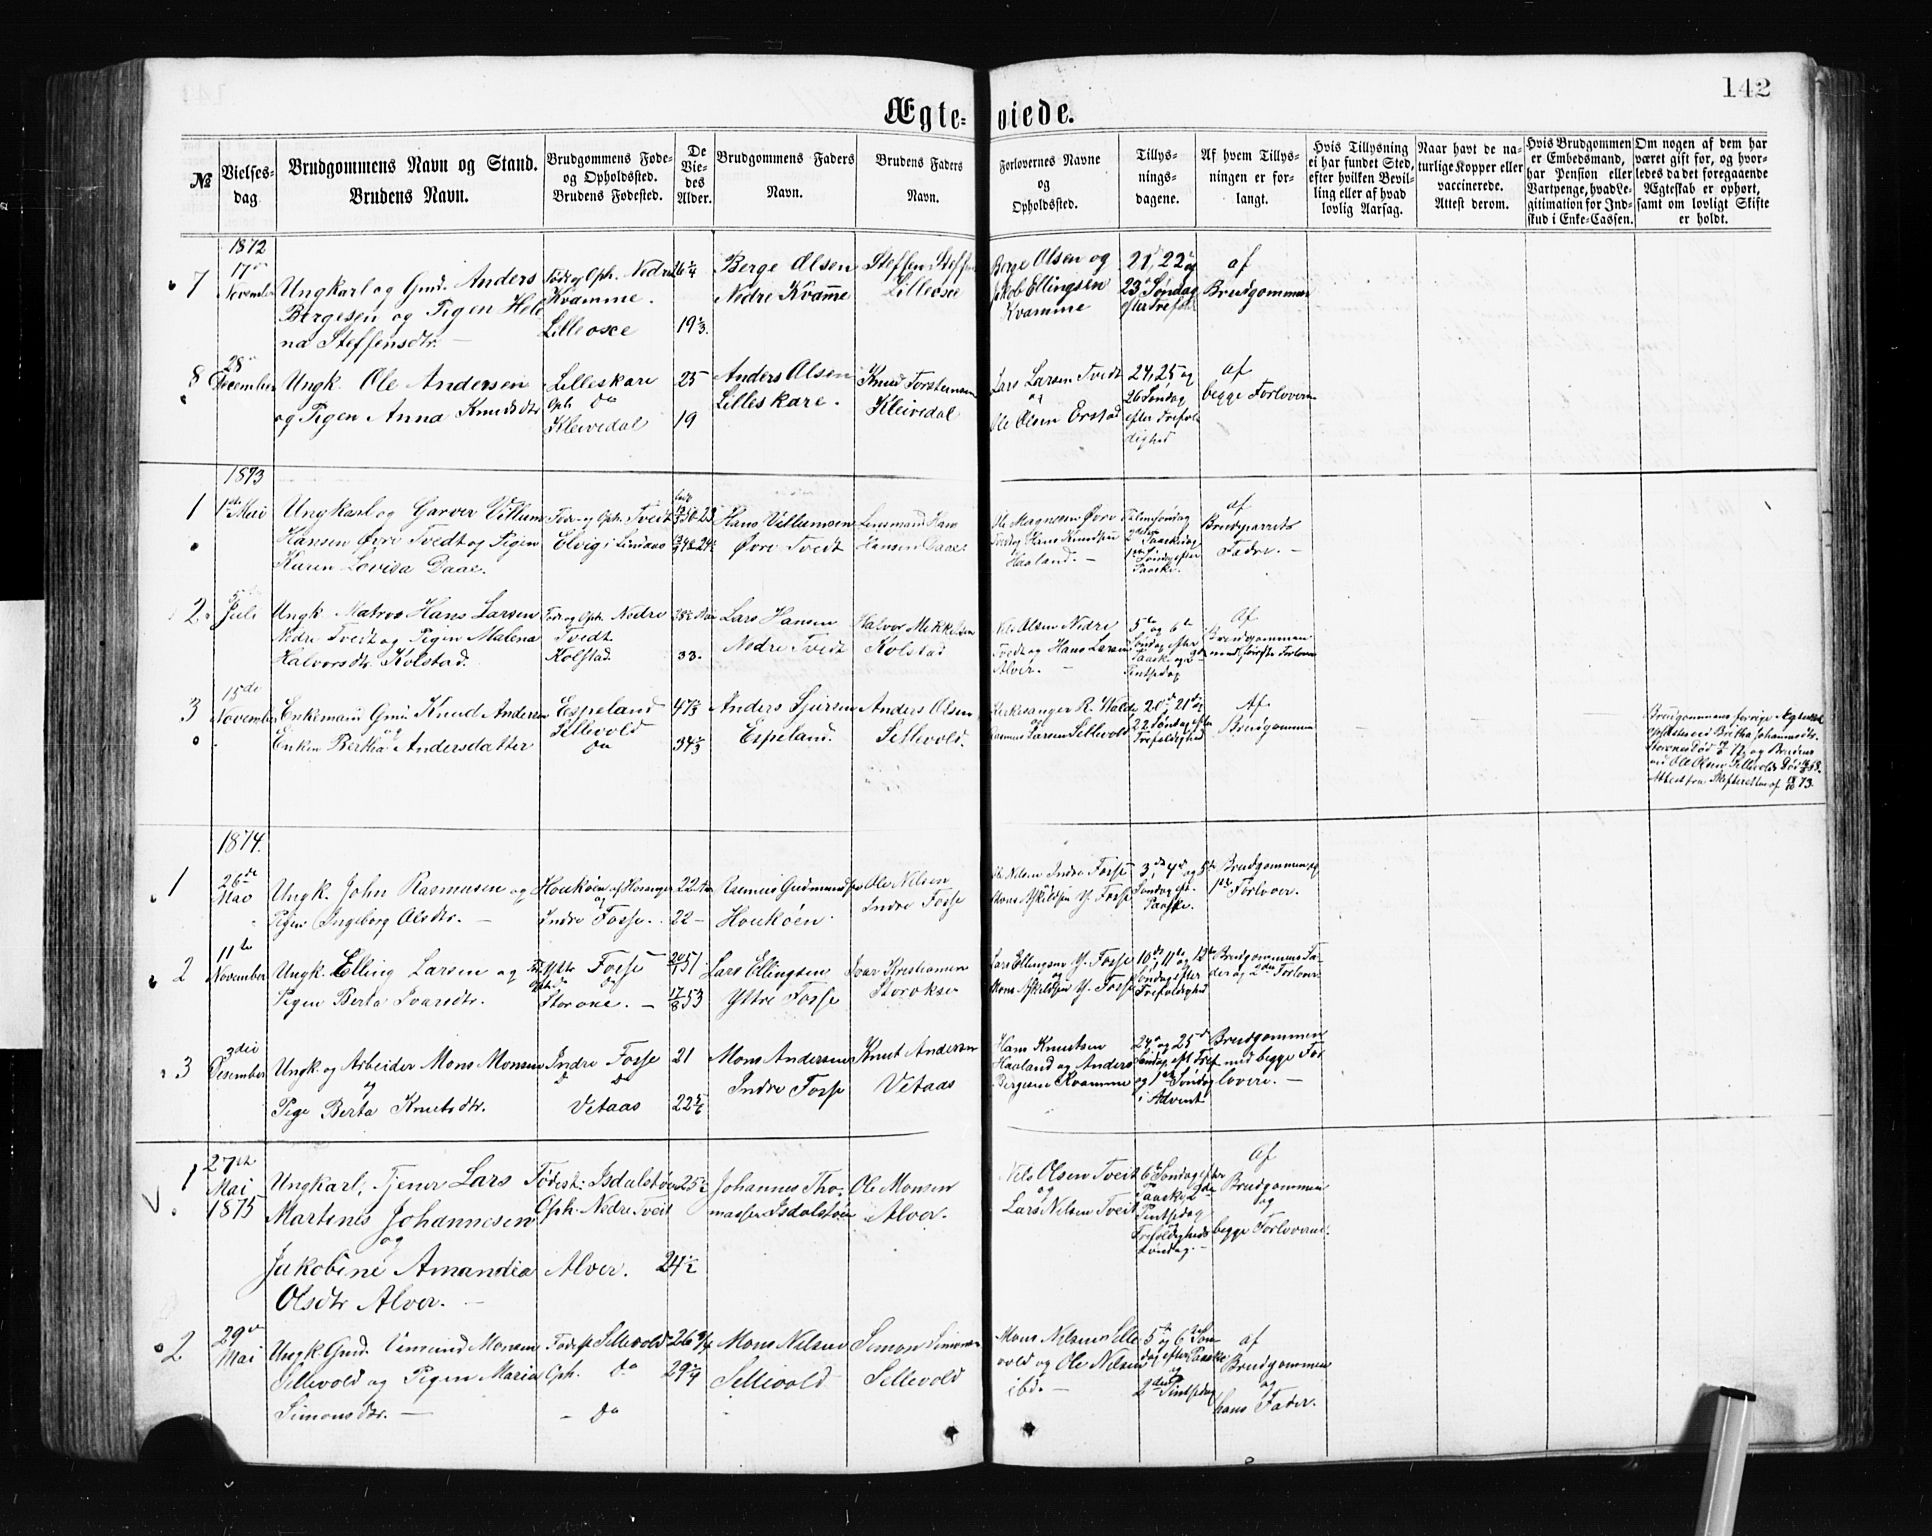 142
Ægteviede.
№
Vielses-
dag
Brudgommens Navn og Stand.
Brudens Navn.
Brudgommens Føde-
og Opholdssted.
Brudens Fødested.
De
Vie-
des
Alder.
Brudgommens Faders
Navn.
Brudens Faders
Navn.
Forlovernes Navne
og
Opholdssted.
Tillys-
nings-
dagene.
Af hvem Tillys-
ningen er for-
langt.
Hvis Tillysning
ei har fundet Sted,
efter hvilken Bevil-
ling eller af hvad
lovlig Aarsag.
Naar havt de na-
turlige Kopper eller
vaccinerede.
Attest derom.
Hvis Brudgommen
er Embedsmand,
har Pension eller
Vartpenge, hvad Le-
gitimation for Ind-
skud i Enke-Cassen.
Om nogen af dem har
været gift før, og hvor-
ledes da det foregaaende
Ægteskab er ophørt,
samt om lovligt Skifte
er holdt.
1872
7
17
November
Ungkarl og Gmd. Anders
Bergesen og Pigen Hele
na Steffensdtr.
Føde og Oph. Nedre
Kvamme.
Lilleosee
19
Berge Olsen
Nedre Kvamme
Steffen
Lilleosee
Berge Olsen og
Ellingsen
Kvamme
21, 22 og
23 Søndag
efter Trefold
af
Brudgommen
8
28
December
Ungk. Ole Andersen
og Pigen Anna Knudsdtr
Lilleskare
Oph. Do
Kleivedal
25
19
Anders Olsen
Lilleskare.
Knud Torstensen
Kleivedal
Lars Larsen Tvedt
og
Ole Olsen Erstad
24, 25 og
26 Søndag
efter Trefol
dighed
af
begge Forlovere
1873
1
1 Mai
Ungkarl og Garver Villum
Hansen Øvre Tvedt og Pigen
Karen Lovisa Daae.
Føde og Oph. Tveit
Elvig i Lindaas
Hans Villumsen
Øvre Tvedt
Lensmand Hans
Hansen Daae
Ole Magnesen Øvre
Tvedt og Hans Knudsen
Haaland.
Palmesøndag
2 Paaskedag
1 Søndag efter
Paaske.
af
Brudparrets
Fædre.
2
5
Juli
Ungk. Matros Hans Larsen
Nedre Tvedt og Pigen Malena
Halvorsdtr. Kolstad.
Føde og Oph. Nedre
Tvedt.
Kolstad.
33.
Lars Hansen
Nedre Tvedt
Halvor Mikkelsen
Kolstad
Nils Olsen Nedre
Tvedt og Hans Larsen
Alver.
5te og 6te
Søndag efter
Paaske og 2den
Pintsedag
Af
Brudgommen
med første Forlover
3
15de
November
Enkemand Gmd. Knud Andersen
og
Enken Bertha Andersdatter
Espeland
Sellevold
Do
Anders Sjursen
Espeland.
Anders Olsen
Sellevold.
Kirkesanger R. Walde
Rasmus Larsen Sellevold
20de, 21de og
22 Søndag efter
Trefoldighed
Af
Brudgommen
Brudgommens forrige Ægteskab
1874.
1
26de
Mai
Ungk. John Rasmusen og
Pigen Ingeborg Olsdtr.
Houkøen af Hosanger
og
Indre Fosse.
22
Rasmus Gudmundsen
Houkøen.
Ole Nilsen
Indre Fosse
Ole Nilsen Indre Fosse
Mons Askildsen Y. Fosse
3, 4 og 5te
Søndag eft.
Paaske.
Brudgommen og
1ste Forlover.
2
11te
November
Ungk. Elling Larsen og
Pigen Berta Ivarsdtr.
Ytre Fosse
Storoxe.
Lars Ellingsen
Yttre Fosse
Ivar Kristiansen
Storokse
Lars Ellingsen Y. Fosse
og
Mons Askildsen Y. Fosse
10de, 11te og 12te
Søndag efter
Trefoldighed
Brudgommens Fa-
der og 2den Forlover
3
3die
Desember
Ungk. og Arbeider Mons Monsen
og
Pige Berta Knutsdtr.
Indre Fosse
Do
Vetaas
21
Mons Andersen
Indre Fosse
Knut Andersen
Vetaas
Hans Knutsen
Haaland og Anders
Bergesen Kvamme
24 og 25
Søndag eft. Tref
og 1ste Søndag
i Advent
Brudgommen
med begge For
lovere.
1
27de
Mai
1875
Ungkarl, Tjener Lars
Martinus Johannesen
og
Jakobine Amandia
Olsdtr Alver.
Fødest: Isdalstøen
Oph. Nedre Tveit
Alver.
25½
24½
Johannes Tho-
massen Isdalstøen
Ole Monsen
Alver.
Nels Olsen Tveit
og
Lars Nilsen Tveit
6te Søndag efter
Paaske, 2den
Pintsedag
Trefoldigheds
Søndag.
Af
Brudgommen
og
begge Forlovere.
2
29
Mai
Ungk. Gmd. Monsen
Sellevold og Pigen Maria
Simonsdtr.
Fødest Sellevold
Oph. Do
Do
Mons Nilsen
Sellevold
Simon Simonsen
Sellevold
Mons Nilsen Selle
vold og Ole Nilsen
ibd.
5 og 6te Søn
dag efter Paaske
og
2den Pintsedag
af
Brudgommen
og
hans Fader.